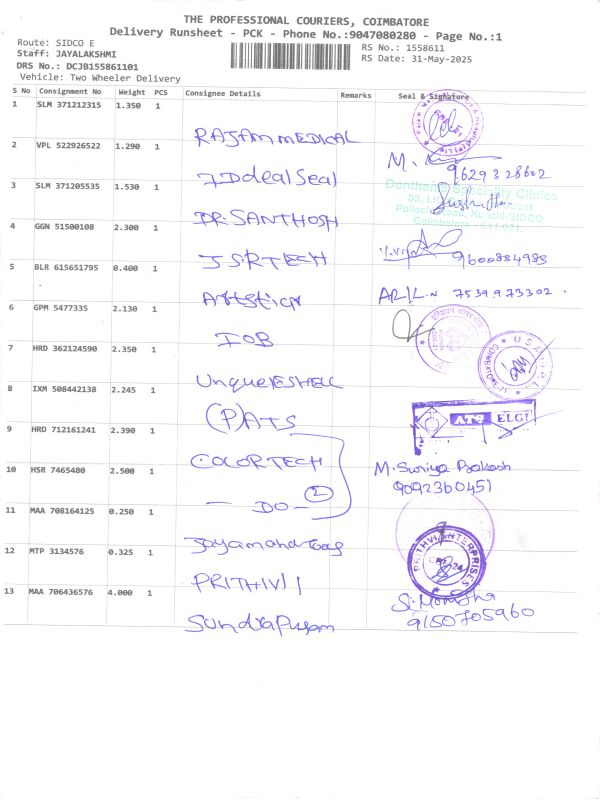 THE PROFESSIONAL COURIERS, COIMBATORE
Delivery Runsheet - PCK - Phone No.:9047080280 - Page No.:1
Route: SIDCO E
RS No.: 1558611
Staff: JAYALAKSHMI
RS Date: 31-May-2025
DRS No.: DCJB155861101
Vehicle: Two Wheeler Delivery
S No Consignment No Weight PCS Consignee Details Remarks Seal & Signature
1 SLM 371212315 1.350 1 RAJAM MEDICAL
2 VPL 522926522 1.290 1 IDdeal Seal M. 9629328602
3 SLM 371205535 1.530 1 DR SANTHOSH
Speciality Clinics
Coimbatore - 641 021.
4 GGN 51500108 2.300 1 JSR TECH 9600884983
5 BLR 615651795 0.400 1 7539973302.
6 GPM 5477335 2.130 1 IOB
7 HRD 362124590 2.350 1 Unque ESHELL
8 IXM 508442138 2.245 1 (P) ATS ATS ELGI
9 HRD 712161241 2.390 1 COLORTECH M. Suriya Prakash
9092360451
10 HSR 7465480 2.500 1 - DO - 2
11 MAA 708164125 0.250 1
12 MTP 3134576 0.325 1 PRITHIVI PRITHVI ENTERPRISES
13 MAA 706436576 4.000 1 9150705960